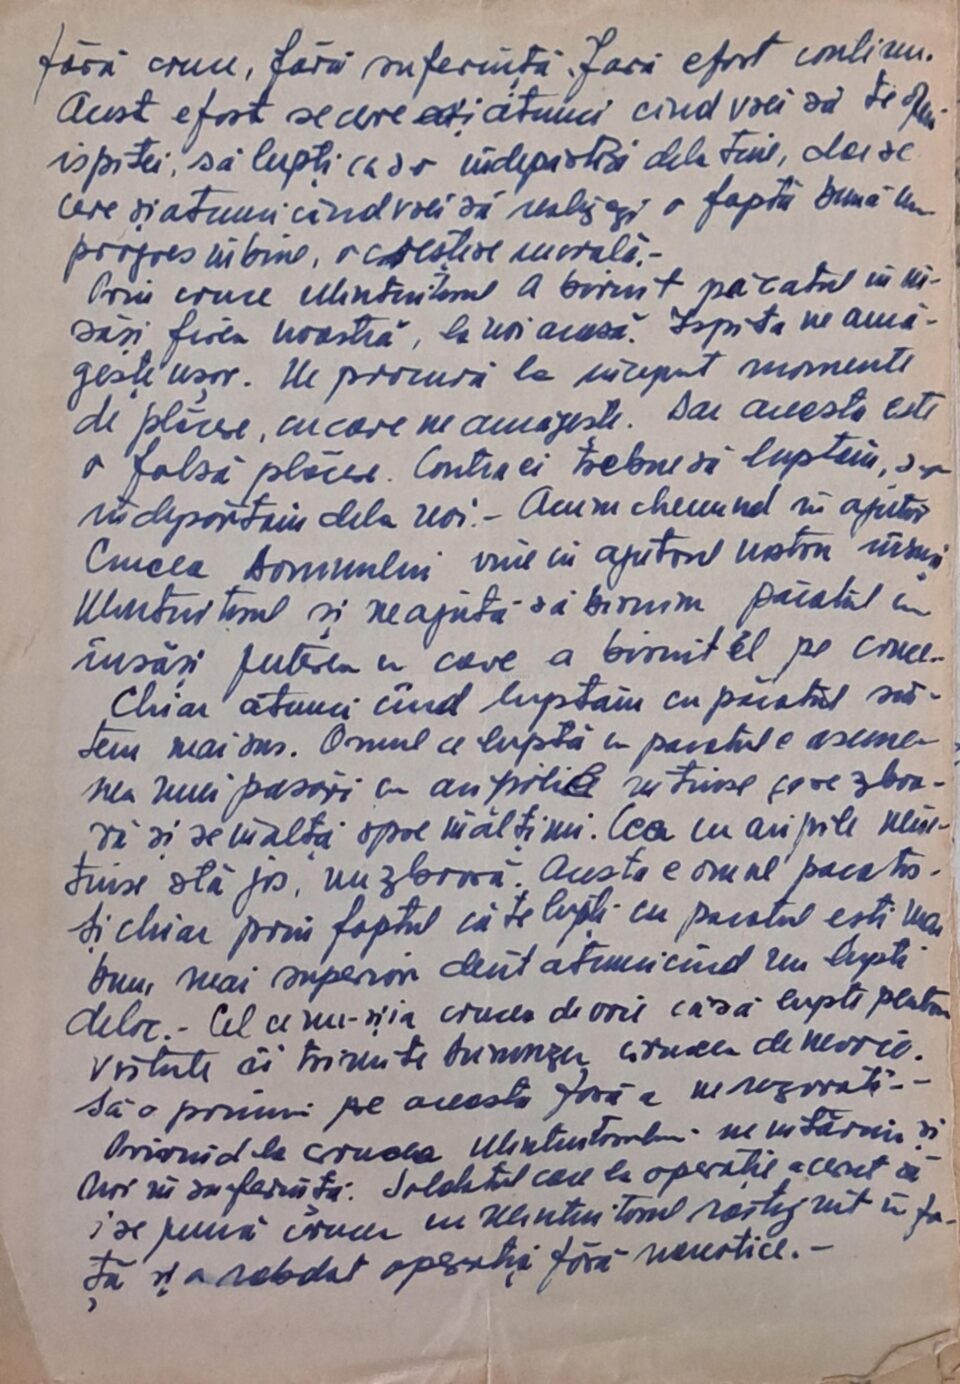 fără cruce, fără suferință. Fară efort continu.
Acest efort se cere și atunci cînd vrei să te opui
ispitei, să lupți ca s-o îndepărtezi dela tine, dar se
cere și atunci cînd vrei să realizezi o faptă bună un
progres în bine, o creștere morală.-
Prin cruce Mîntuitorul a biruit păcatul în în-
săși firea noastră, la noi acasă. Ispita ne amă-
gește ușor. Ne procură la început momente
de plăcere, cu care ne amăgește. Dar aceasta este
o falsă plăcere. Contra ei trebue să luptăm, s-o
îndepărtăm dela noi.- Acum chemînd în ajutor
Crucea Domnului vine în ajutorul nostru însuși
Mîntuitorul și ne ajută să biruim păcatul cu
însăși puterea cu care a biruit El pe cruce.
Chiar atunci cînd luptăm cu păcatul sîn-
tem mai sus. Omul ce luptă cu pacatul e aseme-
nea unei pasări cu aripile întinse care zboa-
ră și se înalță spre înălțimi. Cea cu aripile neîn-
tinse stă jos, nu zboară. Acesta e omul pacatos.
Și chiar prin faptul că te lupți cu pacatul esti mai
bun, mai superior decît atunci cînd nu lupți
deloc.- Cel ce nu-și ia crucea de voie ca să lupte pentru
virtute îi trimite Dumnezeu crucea de nevoie.
Să o primim pe aceasta fără a ne rezvrăti.-
Privind la crucea Mîntuitorului ne întărim și
noi în suferință. Soldatul care la operație a cerut să
i se pună crucea cu Mîntuitorul răstignit în fa-
ță și a rabdat operația fără narcotice.-